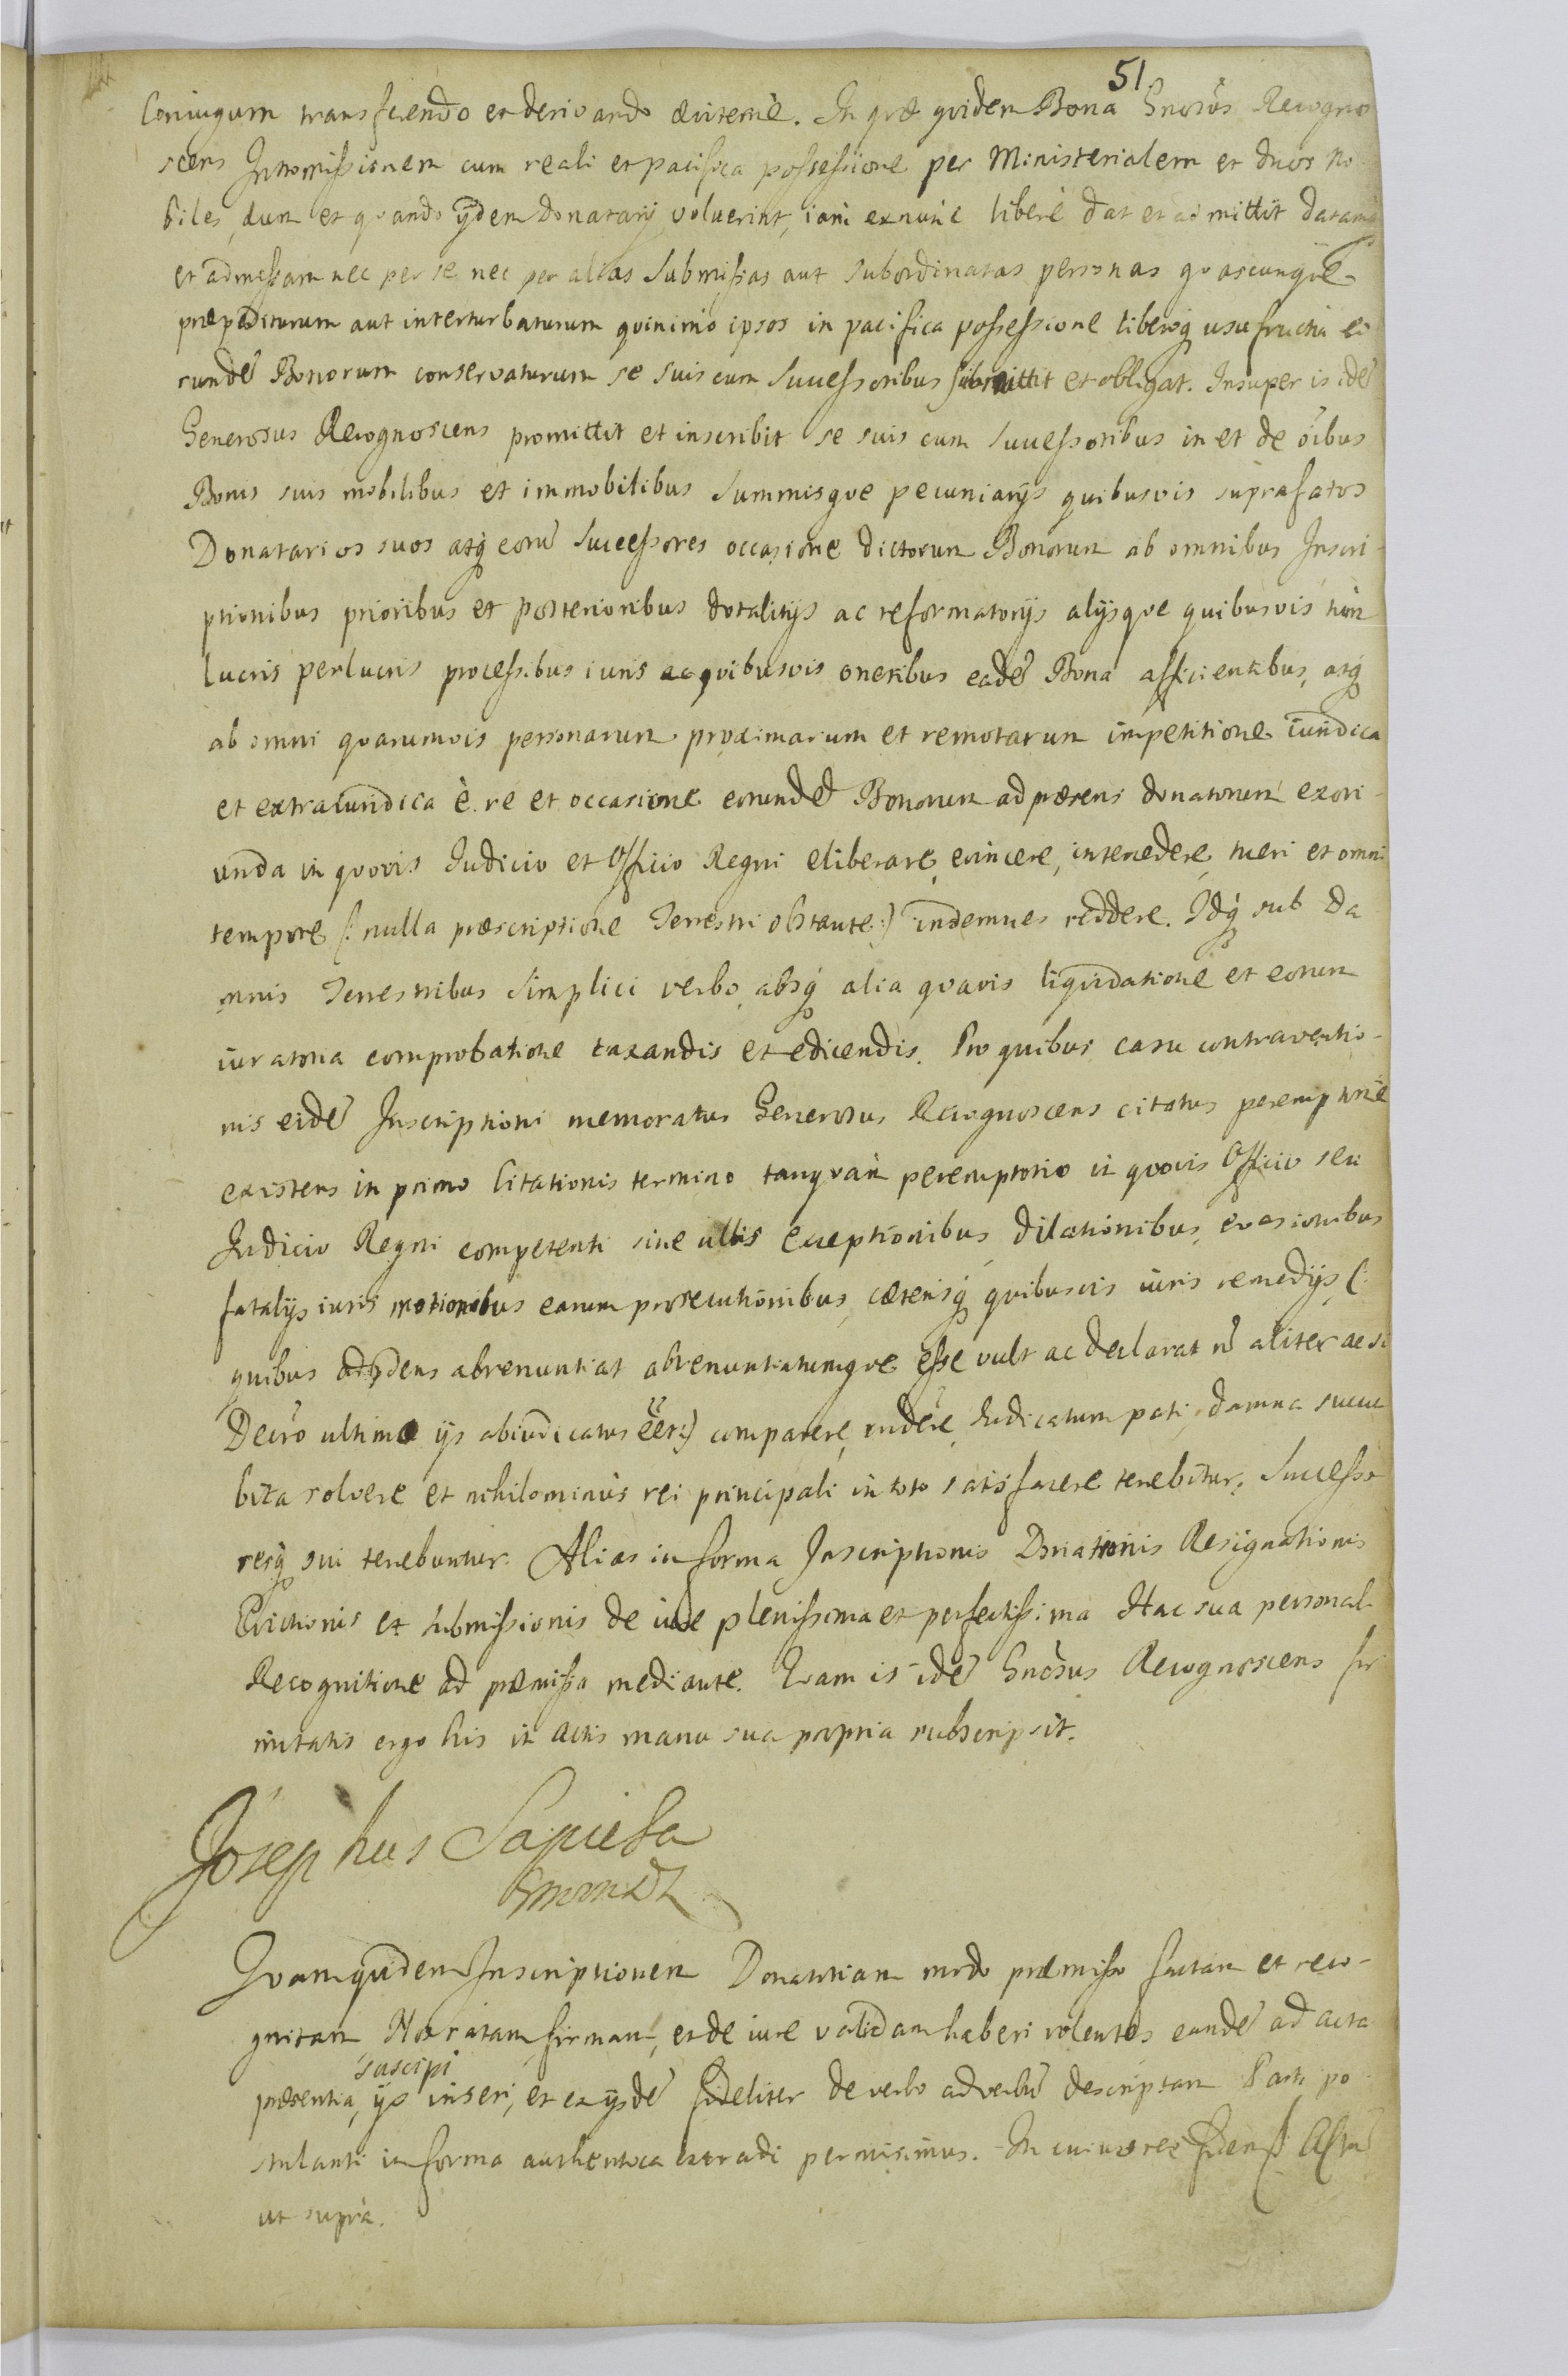 51
Coniugum transferendo et derivando æviternè. In quæ quidem Bona Gnosus Recogno
scens Intromissionem cum reali et pacifica possessione per Ministerialem et duos No
biles, dum et quando ijdem donatarij voluerint, iam exnunc liberè dat et admittit datamq́
et admissam nec per se nec per alias submissas aut subordinatas personas quascunque
præpediturum aut interturbaturum quinimò ipsos in pacifica possessione liberoq́ usufructu eo
rundẽ Bonorum conservaturum se suis cum Successoribus submittit et obligat. Insuper is idẽ
Generosus Recognoscens promittit et inscribit se suis cum Successoribus in et de õibus
Bonis suis mobilibus et immobilibus Summisque pecuniarijs quibusvis suprafatos
Donatarios suos atq́ eorũ Successores occasione dictorum Bonorum ab omnibus Inscri-
ptionibus prioribus et posterioribus dotalitijs ac reformatorijs alijsque quibusvis nõn
lucris perlucris processibus iuris ac quibusvis oneribus eadẽ Bona afficientibus, atq́
ab omni quarumvis personarum proximarum et remotarum impetitione iuridica
et extraiuridica è re et occasione eorundẽ Bonorum ad præsens donatorum exori-
unda in quovis Iudicio et Officio Regni eliberare, evincere, intercedere, tueri et omni
tempore (: nulla præscriptione Terrestri obstante :) indemnes reddere. Idq́ sub da
mnis Terrestribus simplici verbo absq́ alia quavis liquidatione et eorum
iuratoria comprobatione taxandis et edicendis. Pro quibus casu contraventio-
nis eidẽ Inscriptioni memoratus Generosus Recognoscens citatus peremptoriè
existens in primo Citationis termino tanquam peremptorio in quovis Officio seu
Iudicio Regni competenti sine ullis Exceptionibus, dilationibus, evasionibus
fatalijs iuris motionibus earum prosecutionibus, cæterisq́ quibusvis iuris remedijs (:
quibus abrenuntiat abrenuntiatumque esse vult ac declarat nõ aliter ac si
Decrõ ultimo ijs abiudicatus ẽet :) comparere, rñdere, Iudicatum pati, damna succu
bita solvere et nihilominus rei principali in toto satisfacere tenebitur, Successo
resq́ sui tenebuntur. Alias in forma Inscriptionis Donationis Resignationis
Evictionis et submissionis de iure plenissima et perfectissima Hac sua personali
Recognitione ad præmissa mediante. Quam is idẽ Gnosus Recognoscens fir
mitatis ergo his in Actis manu sua propria subscripsit.
Josephus Sapieha
Quamquidem Inscriptionem Donatoriam modo præmisso factam et reco-
gnitam, Nos ratam, firmam, et de iure validam haberi volentes eandẽ ad acta
suscipi
præsentia, ijs inseri, et ex ijsdẽ fideliter de verbo ad verbũ descriptam Parti po
stulanti in forma authentica extradi permisimus. In cuius rei fidem Actũ
ut supra.